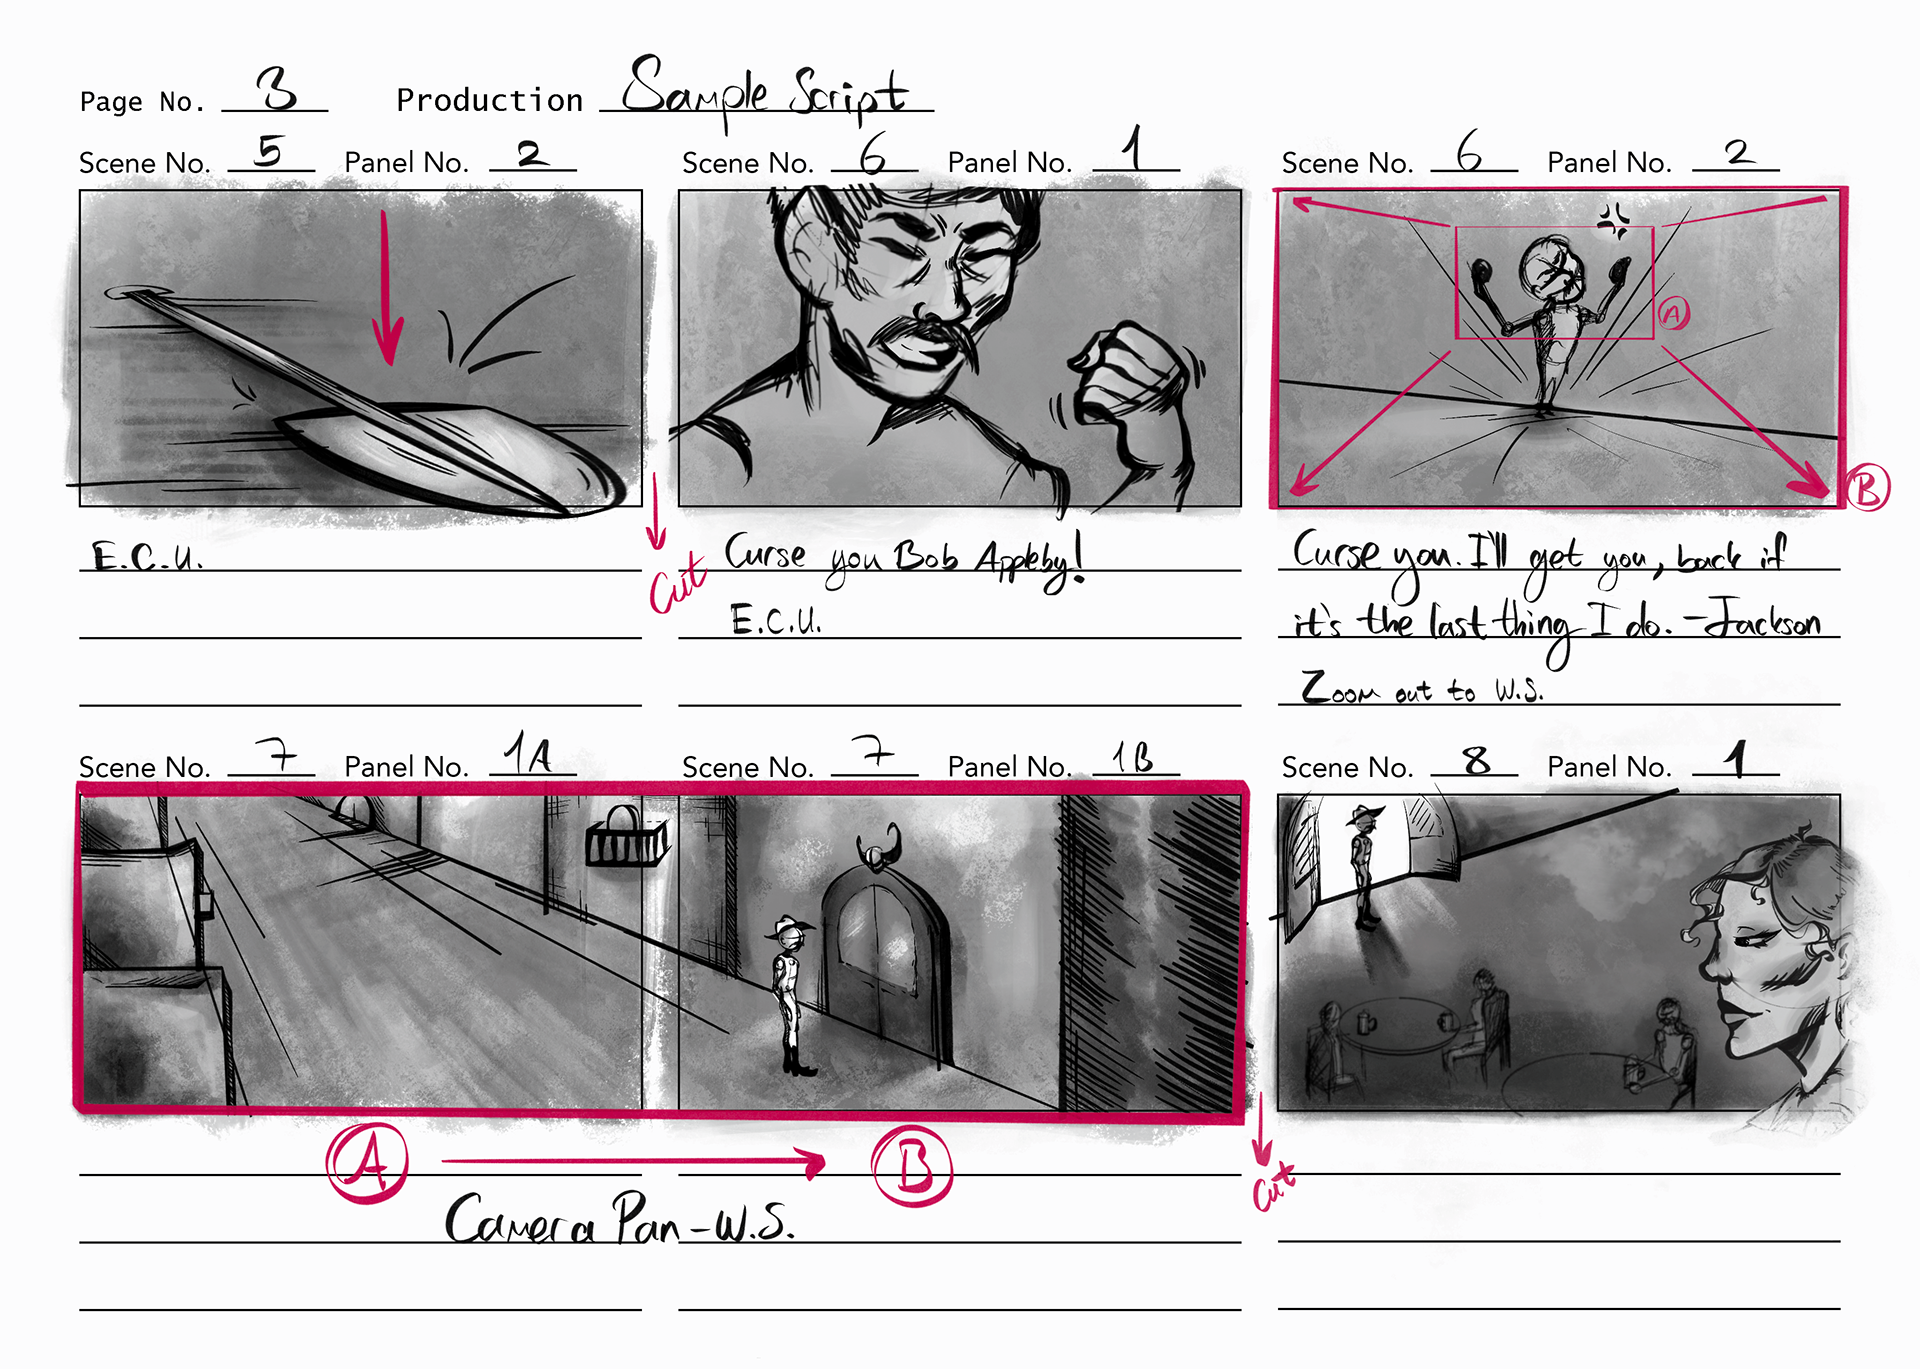 Page No. 3 Production Sample Script
Scene No. 5 Panel No. 2
E.C.U.
Cut
Scene No. 6 Panel No. 1
Curse you Bob Appleby!
E.C.U.
Scene No. 6 Panel No. 2
A
B
Curse you. I'll get you, back if
it's the last thing I do. -Jackson
Zoom out to W.S.
Scene No. 7 Panel No. 1A
Scene No. 7 Panel No. 1B
A B
Camera Pan - W.S.
Cut
Scene No. 8 Panel No. 1